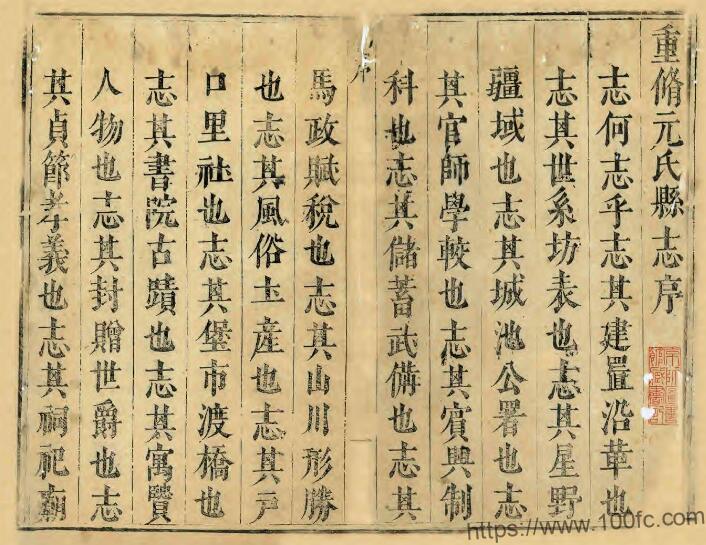 重脩元氏縣志序
志何志乎志其建置沿革也
志其世系坊表也志其星野
疆域也志其城池公署也志
其官師學較也志其賓興制
科也志其儲蓄武備也志其
序
一
馬政賦稅也志其山川形勝
也志其風俗土產也志其戸
口里社也志其堡市渡橋也
志其書院古蹟也志其寓賢
人物也志其封贈世爵也志
其貞節孝義也志其祠祀廟
https://www.100fc.com